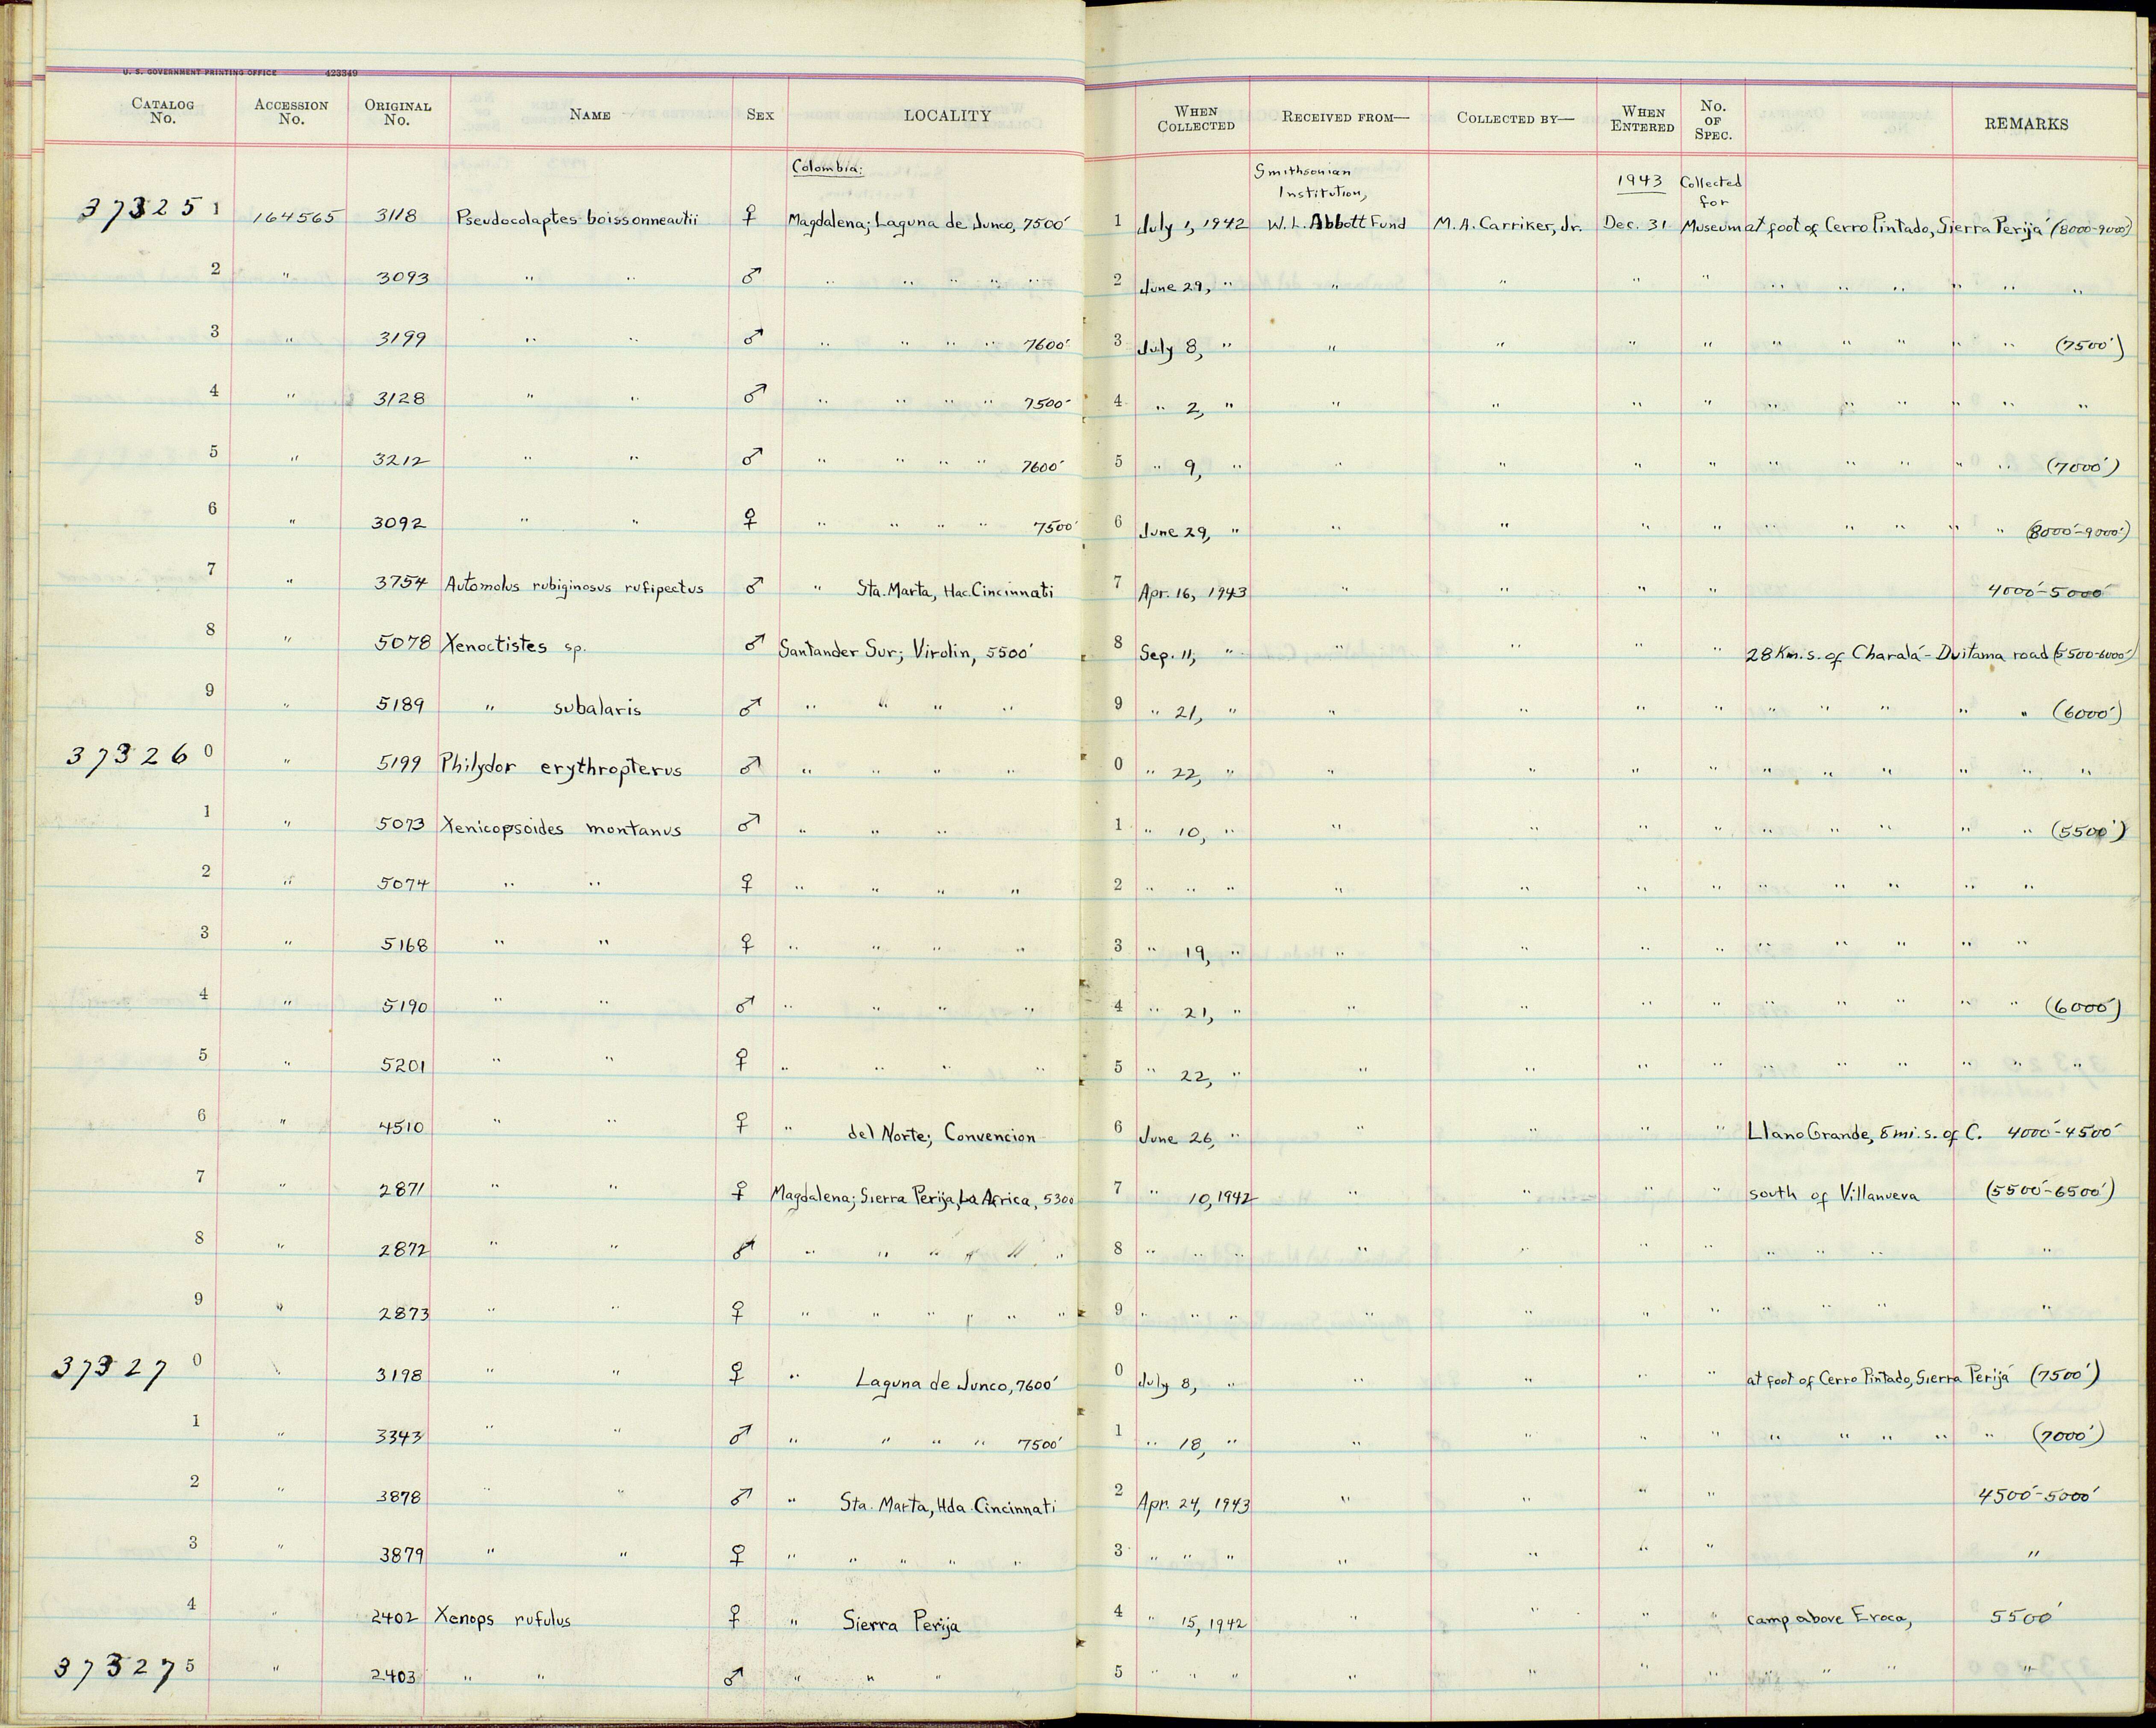 U. S. GOVERNMENT PRINTING OFFICE 423349
CATALOG No. ACCESSION No. ORIGINAL No. NAME SEX LOCALITY WHEN COLLECTED RECEIVED FROM— COLLECTED BY— WHEN ENTERED No. OF SPEC. REMARKS
Colombia: Smithsonian Institution, 1943 Collected for
373251 164565 3118 Pseudocolaptes boissonneautii ♀ Magdalena; Laguna de Junco, 7500' 1 July 1, 1942 W. L. Abbott Fund M. A. Carriker, Jr. Dec. 31 Museum at foot of Cerro Pintado, Sierra Perijá (8000-9000')
2 " 3093 " " ♂ " " " " " 2 June 29, " " " " " " " " " " "
3 " 3199 " " ♂ " " " " 7600' 3 July 8, " " " " " " " " " " (7500')
4 " 3128 " " ♂ " " " " 7500' 4 " 2, " " " " " " " " " " "
5 " 3212 " " ♂ " " " " 7600' 5 " 9, " " " " " " " " " " (7000')
6 " 3092 " " ♀ " " " " 7500' 6 June 29, " " " " " " " " " " (8000'-9000')
7 " 3754 Automolus rubiginosus rufipectus ♂ " Sta. Marta, Hac. Cincinnati 7 Apr. 16, 1943 " " " " 4000'-5000'
8 " 5078 Xenoctistes sp. ♂ Santander Sur; Virolin, 5500' 8 Sep. 11, " " " " " 28 Km. s. of Charalá - Duitama road (5500-6000')
9 " 5189 " subalaris ♂ " " " " 9 " 21, " " " " " " " " " " (6000')
373260 " 5199 Philydor erythropterus ♂ " " " " 0 " 22, " " " " " " " " " " "
1 " 5073 Xenicopsoides montanus ♂ " " " 1 " 10, " " " " " " " " " " (5500')
2 " 5074 " " ♀ " " " " 2 " " " " " " " " " " " "
3 " 5168 " " ♀ " " " " 3 " 19, " " " " " " " " " "
4 " 5190 " " ♂ " " " " 4 " 21, " " " " " " " " " " (6000')
5 " 5201 " " ♀ " " " " 5 " 22, " " " " " " " " " " "
6 " 4510 " " ♀ " del Norte; Convencion 6 June 26, " " " " " Llano Grande, 8 mi. s. of C. 4000'-4500'
7 " 2871 " " ♀ Magdalena; Sierra Perija, La Africa, 5300 7 " 10, 1942 " " " " south of Villanueva (5500'-6500')
8 " 2872 " " ♂ " " " " " " 8 " " " " " " " " " " "
9 " 2873 " " ♀ " " " " " " 9 " " " " " " " " " " "
373270 " 3198 " " ♀ " Laguna de Junco, 7600' 0 July 8, " " " " " at foot of Cerro Pintado, Sierra Perijá (7500')
1 " 3343 " " ♂ " " " " 7500' 1 " 18, " " " " " " " " " " (7000')
2 " 3878 " " ♂ " Sta. Marta, Hda. Cincinnati 2 Apr. 24, 1943 " " " " 4500'-5000'
3 " 3879 " " ♀ " " " " " 3 " " " " " " " "
4 " 2402 Xenops rufulus ♀ " Sierra Perija 4 " 15, 1942 " " " " camp above Eroca, 5500'
373275 " 2403 " " ♂ " " " 5 " " " " " " " " " " "